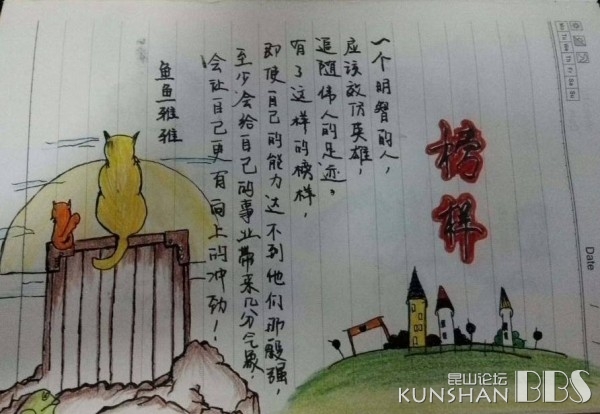 榜样
一个明智的人，
应该效仿英雄，
追随伟人的足迹。
有了这样的榜样，
即使自己的能力达不到他们那般强，
至少会给自己的事业带来几分气象，
会让自己更有向上的冲劲！
鱼鱼雅雅
Date
昆山论坛
KUNSHAN BBS